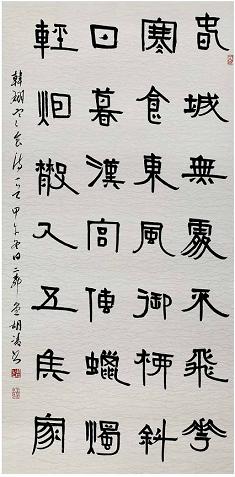 春城無處不飛花
寒食東風御柳斜
日暮漢宮傳蠟燭
輕烟散入五侯家
韓翃寒食詩一首甲午